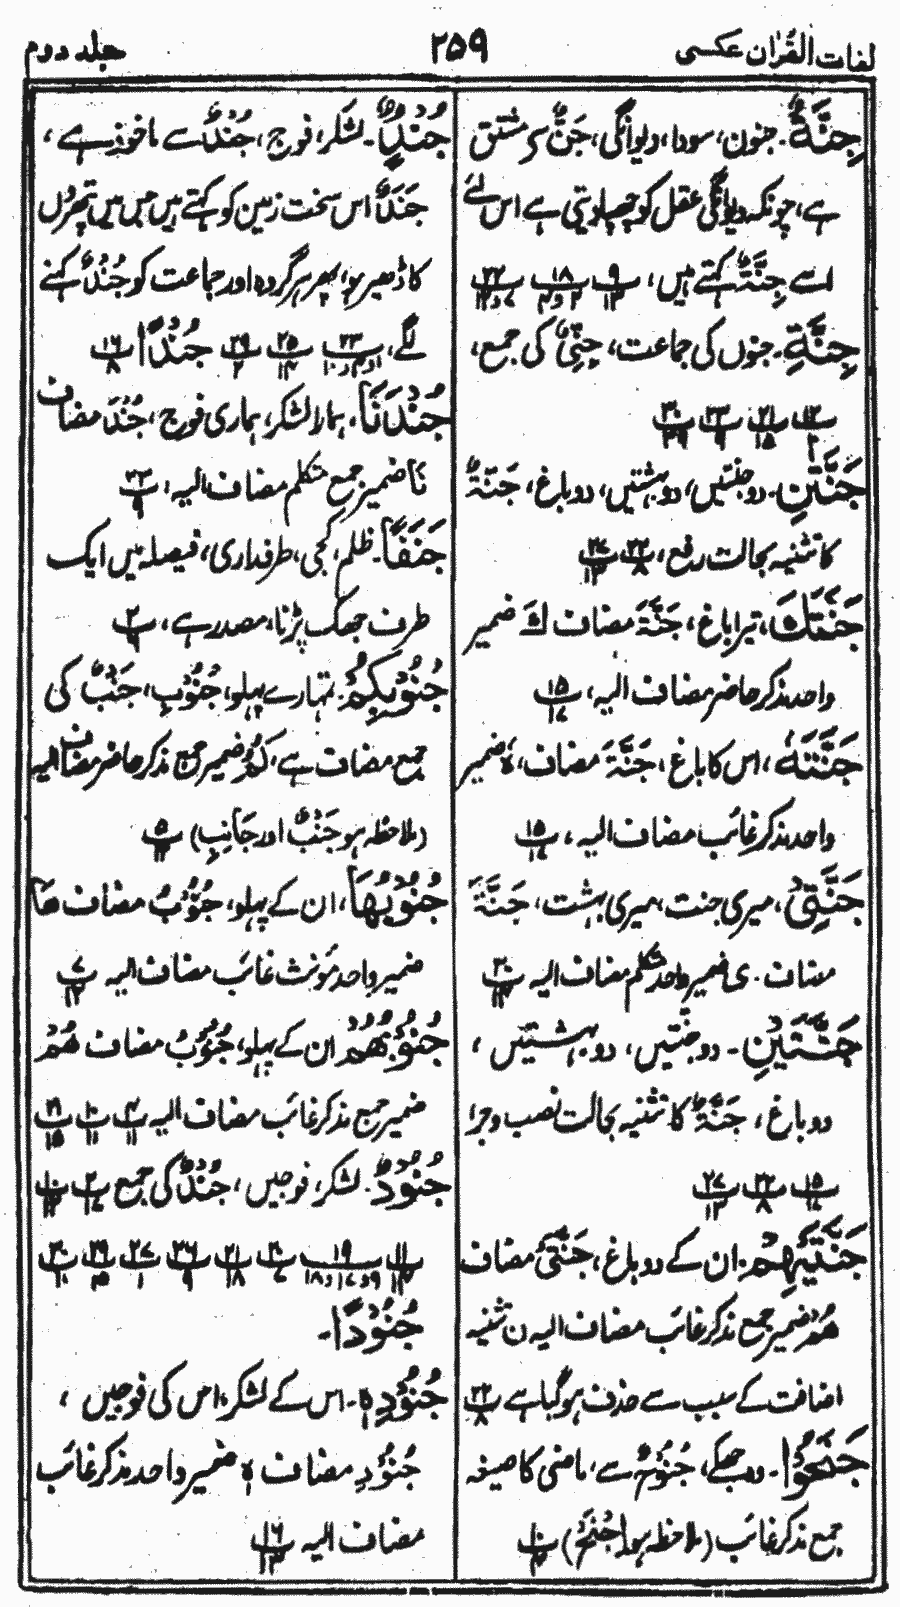 لغات القرآن عکسی
۲۵۹
جلد دوم
جِنَّةٌ۔ جنون، سودا، دیوانگی، جَنٌّ سے مشتق
ہے، چونکہ دیوانگی عقل کو چھپا دیتی ہے اس لئے
اسے جِنَّةٌ کہتے ہیں،
جِنَّةِ۔ جنوں کی جماعت، جِنِّیٌّ کی جمع،
جَنَّتَيْنِ۔ دو جنتیں، دو بہشتیں، دو باغ، جَنَّةٌ
کا تثنیہ بحالت رفع،
جَنَّتَكَ، تیرا باغ، جَنَّةَ مضاف كَ ضمیر
واحد مذکر حاضر مضاف الیہ،
جَنَّتَهٗ، اس کا باغ، جَنَّةَ مضاف، ہٗ ضمیر
واحد مذکر غائب مضاف الیہ،
جَنَّتِیْ، میری جنت، میری بہشت، جَنَّةَ
مضاف۔ ی ضمیر واحد متکلم مضاف الیہ
جَنَّتَيْنِ۔ دو جنتیں، دو بہشتیں،
دو باغ، جَنَّةٌ کا تثنیہ بحالت نصب و جر،
جَنَّتَيْهِمْ۔ ان کے دو باغ، جَنَّتَیْ مضاف
هُمْ ضمیر جمع مذکر غائب مضاف الیہ ن تثنیہ
اضافت کے سبب سے حذف ہو گیا ہے
جَنَحُوْا۔ وہ جھکے، جُنُوْحٌ سے، ماضی کا صیغہ
جمع مذکر غائب (ملاحظہ ہو اجْنَحْ)
جُنْدٌ۔ لشکر، فوج، جُنْدٌ سے ماخوذ ہے،
جَنَدٌ اس سخت زمین کو کہتے ہیں جس میں پتھروں
کا ڈھیر ہو، پھر ہر گروہ اور جماعت کو جُنْدٌ کہنے
لگے، جُنْدًا
جُنْدَنَا۔ ہمارا لشکر، ہماری فوج، جُنْدَ مضاف
نَا ضمیر جمع متکلم مضاف الیہ،
جَنَفًا۔ ظلم، کجی، طرفداری، فیصلہ میں ایک
طرف جھک پڑنا، مصدر ہے،
جُنُوْبُكُمْ۔ تمہارے پہلو، جُنُوْبِ، جَنْبٌ کی
جمع مضاف ہے، كُمْ ضمیر جمع مذکر حاضر مضاف الیہ
(ملاحظہ ہو جَنْبٌ اور جَانِبِ)
جُنُوْبُهَا، ان کے پہلو، جُنُوْبُ مضاف هَا
ضمیر واحد مونث غائب مضاف الیہ
جُنُوْبُهُمْ ان کے پہلو، جُنُوْبُ مضاف هُمْ
ضمیر جمع مذکر غائب مضاف الیہ
جُنُوْدٌ۔ لشکر، فوجیں، جُنْدٌ کی جمع
جُنُوْدًا۔
جُنُوْدِهٖ۔ اس کے لشکر، اس کی فوجیں،
جُنُوْدِ مضاف ہٖ ضمیر واحد مذکر غائب
مضاف الیہ